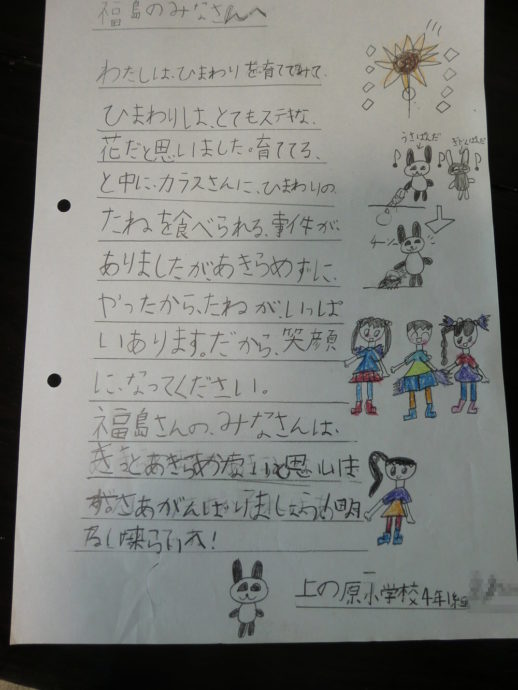 福島のみなさんへ
わたしは、ひまわりを育ててみて、
ひまわりは、とてもステキな、
花だと思いました。育ててる、
と中に、カラスさんに、ひまわりの
たねを食べられる、事件が、
ありましたが、あきらめずに、
やったから、たねが、いっぱ
いあります。だから、笑顔
に、なってください。
福島さんの、みなさんは、
きっとあきらめないと思いま
す。さあがんばりましょう明
るい未来らいへ!
うさぱんだ
チーン
上の原小学校4年1組